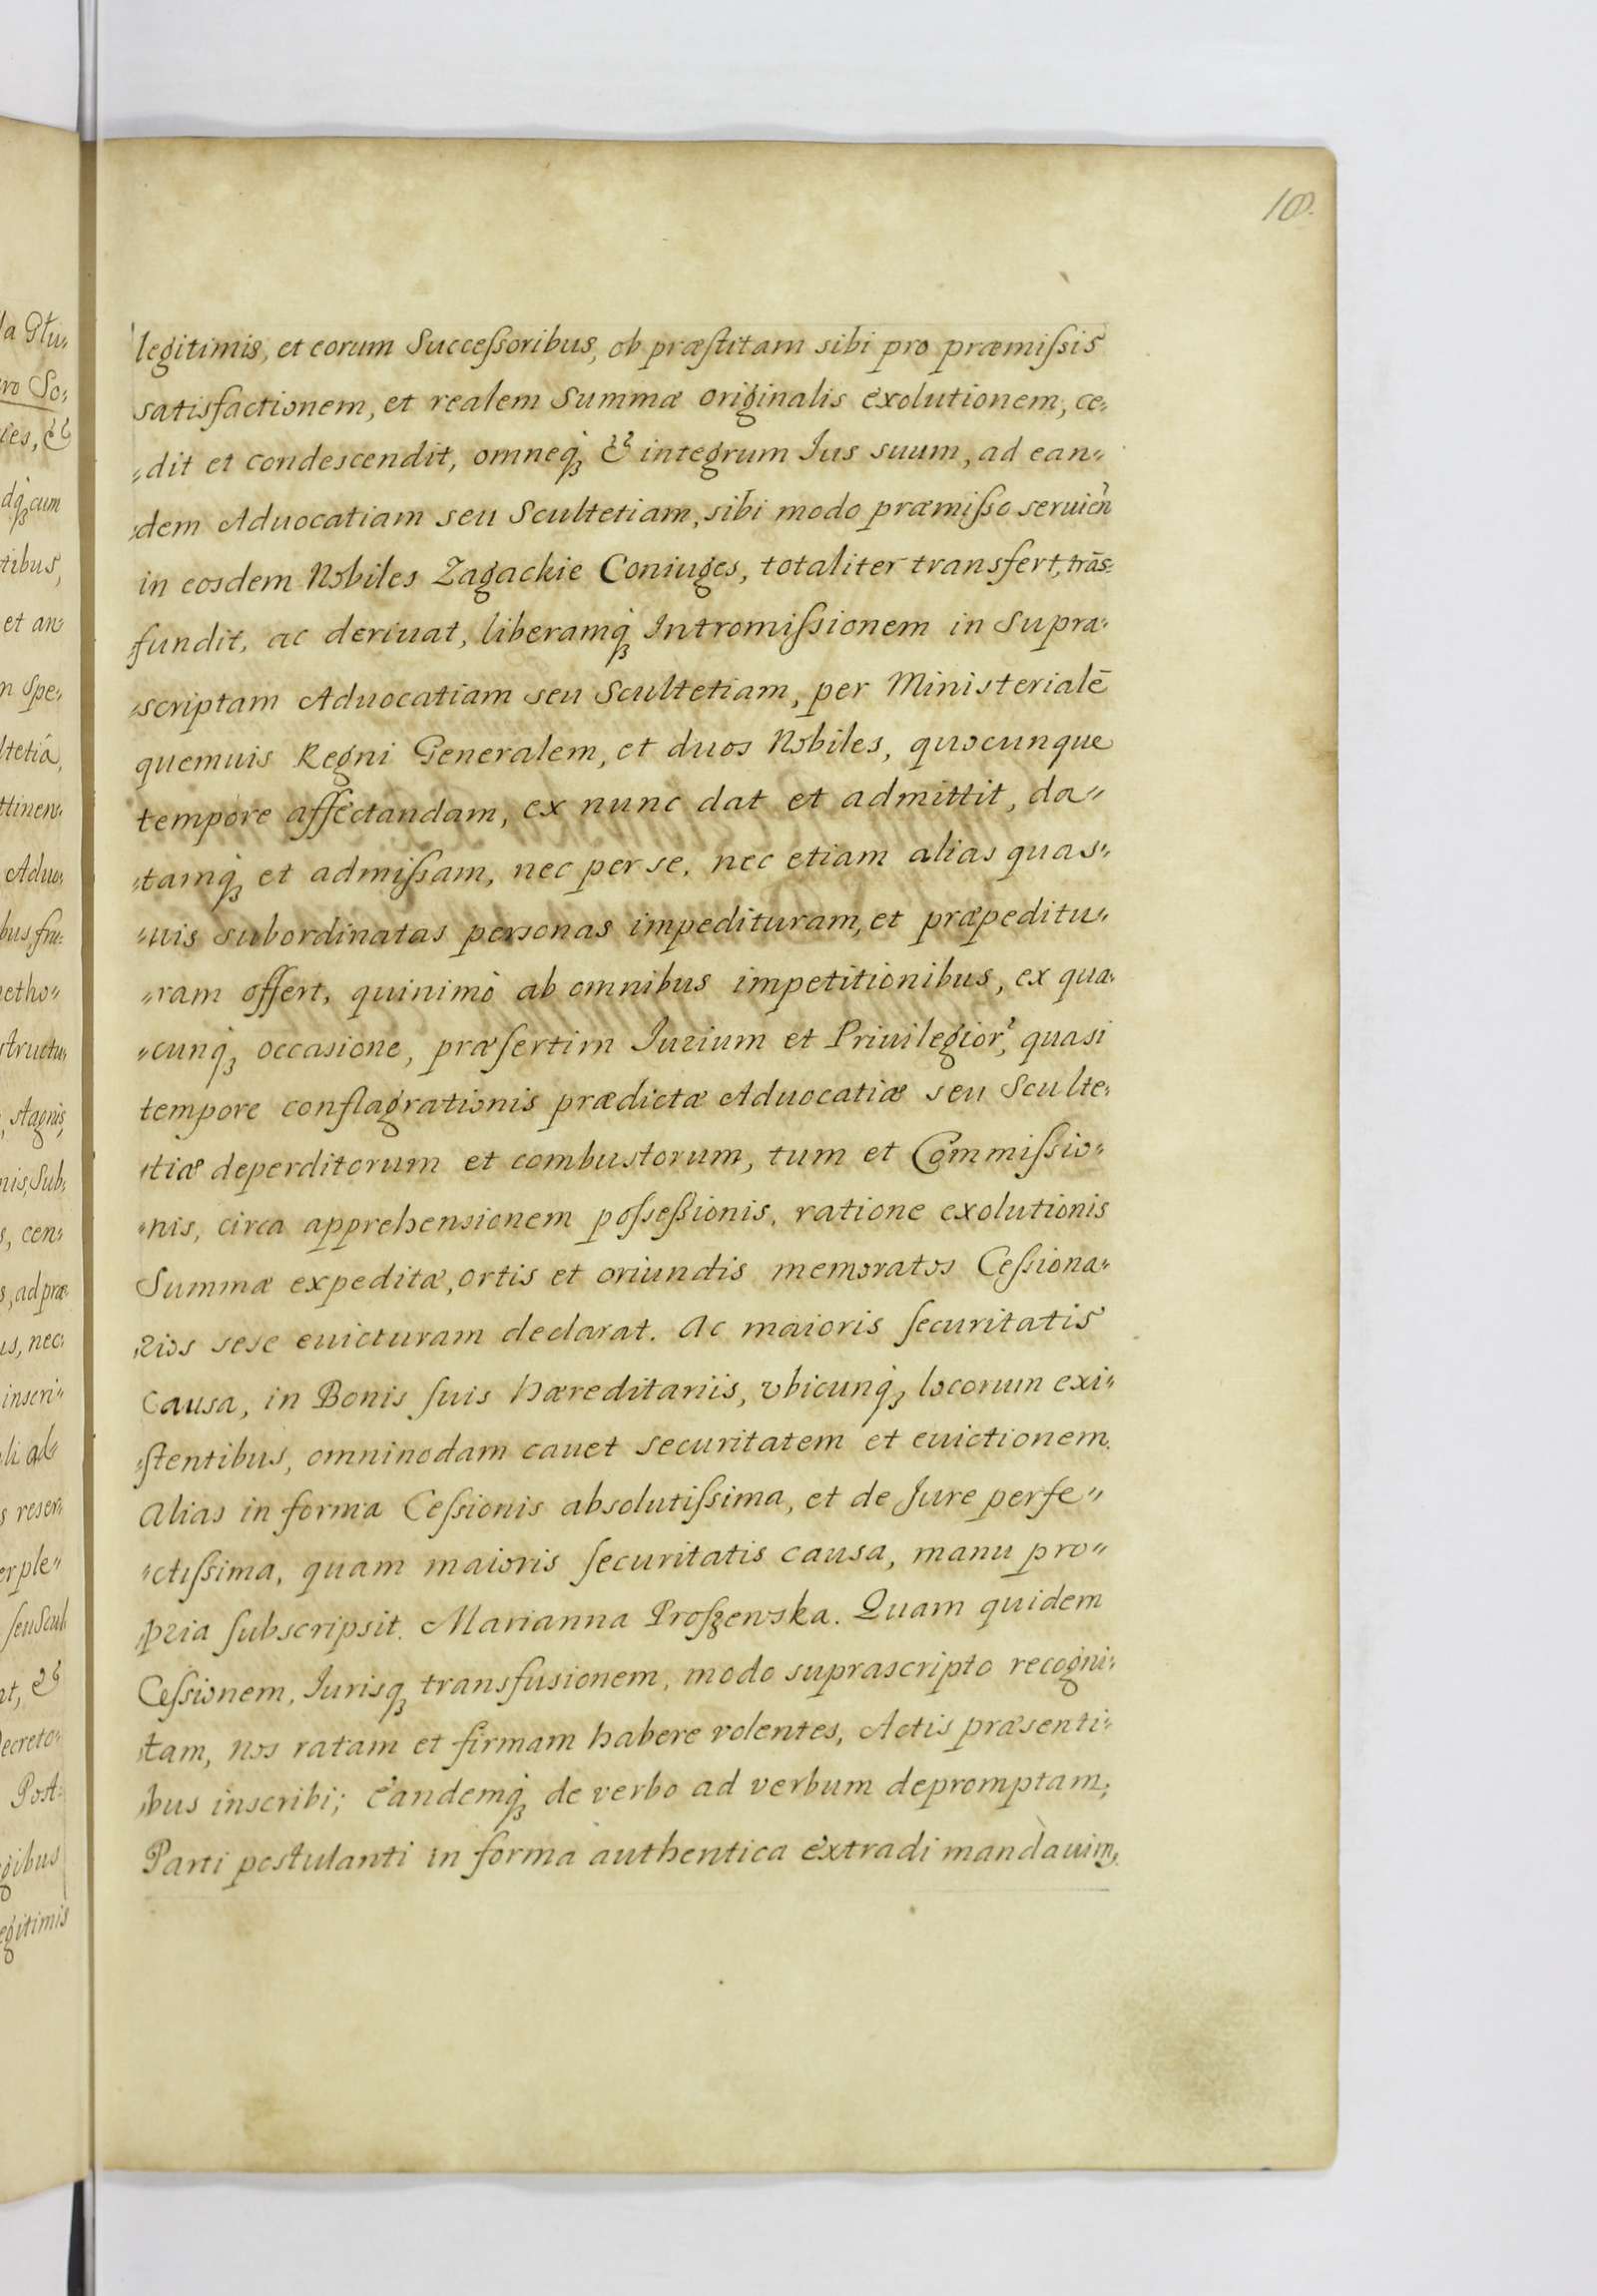 10.
legitimis, et eorum Succeſsoribus, ob præſtitam sibi pro præmiſsis
satisfactionem, et realem Summæ originalis exolutionem, ce„
„dit et condescendit, omneq́ꝫ & integrum Jus suum, ad ean„
„dem Aduocatiam seu Scultetiam, sibi modo præmiſso seruień
in eosdem Nobiles Zagackie Coniuges, totaliter transfert, trās„
„fundit, ac deriuat, liberamq́ꝫ Intromiſsionem in Supra„
„scriptam Aduocatiam seu Scultetiam, per Ministerialē
quemuis Regni Generalem, et duos Nobiles, quocunque
tempore affectandam, ex nunc dat et admittit, da„
„tamq́ꝫ et admiſsam, nec per se, nec etiam alias quas„
„uis subordinatas personas impedituram, et præpeditu„
„ram offert, quinimò ab omnibus impetitionibus, ex quæ„
„cunq́ꝫ occasione, præſertim Jurium et Priuilegior̃, quasi
tempore conflagrationis prædictæ Aduocatiæ seu Sculte„
„tiæ deperditorum et combustorum, tum et Commiſsio„
„nis, circa apprehensionem poſseſsionis, ratione exolutionis
Summæ expeditæ, ortis et oriundis memoratos Ceſsiona„
„rios sese euicturam declarat. Ac maioris ſecuritatis
causa, in Bonis ſuis hæreditariis, vbicunq́ꝫ locorum exi„
„ſtentibus, omnimodam cauet securitatem et euictionem.
Alias in forma Ceſsionis absolutiſsima, et de Jure perfe„
„ctiſsima, quam maioris ſecuritatis causa, manu pro„
„pria ſubscripsit. Marianna Proſzewska. Quam quidem
Ceſsionem, Jurisqꝫ transfusionem, modo suprascripto recogni„
„tam, nos ratam et firmam habere volentes, Actis præsenti„
„bus inscribi; eandemq́ꝫ de verbo ad verbum depromptam,
Parti postulanti in forma authentica extradi mandauimꝰ.